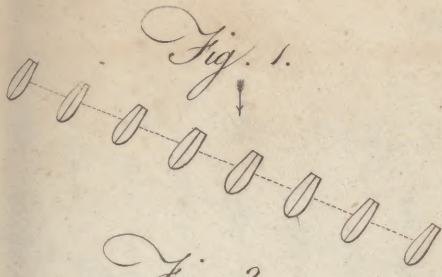 Fig. 1.
Fig. 2